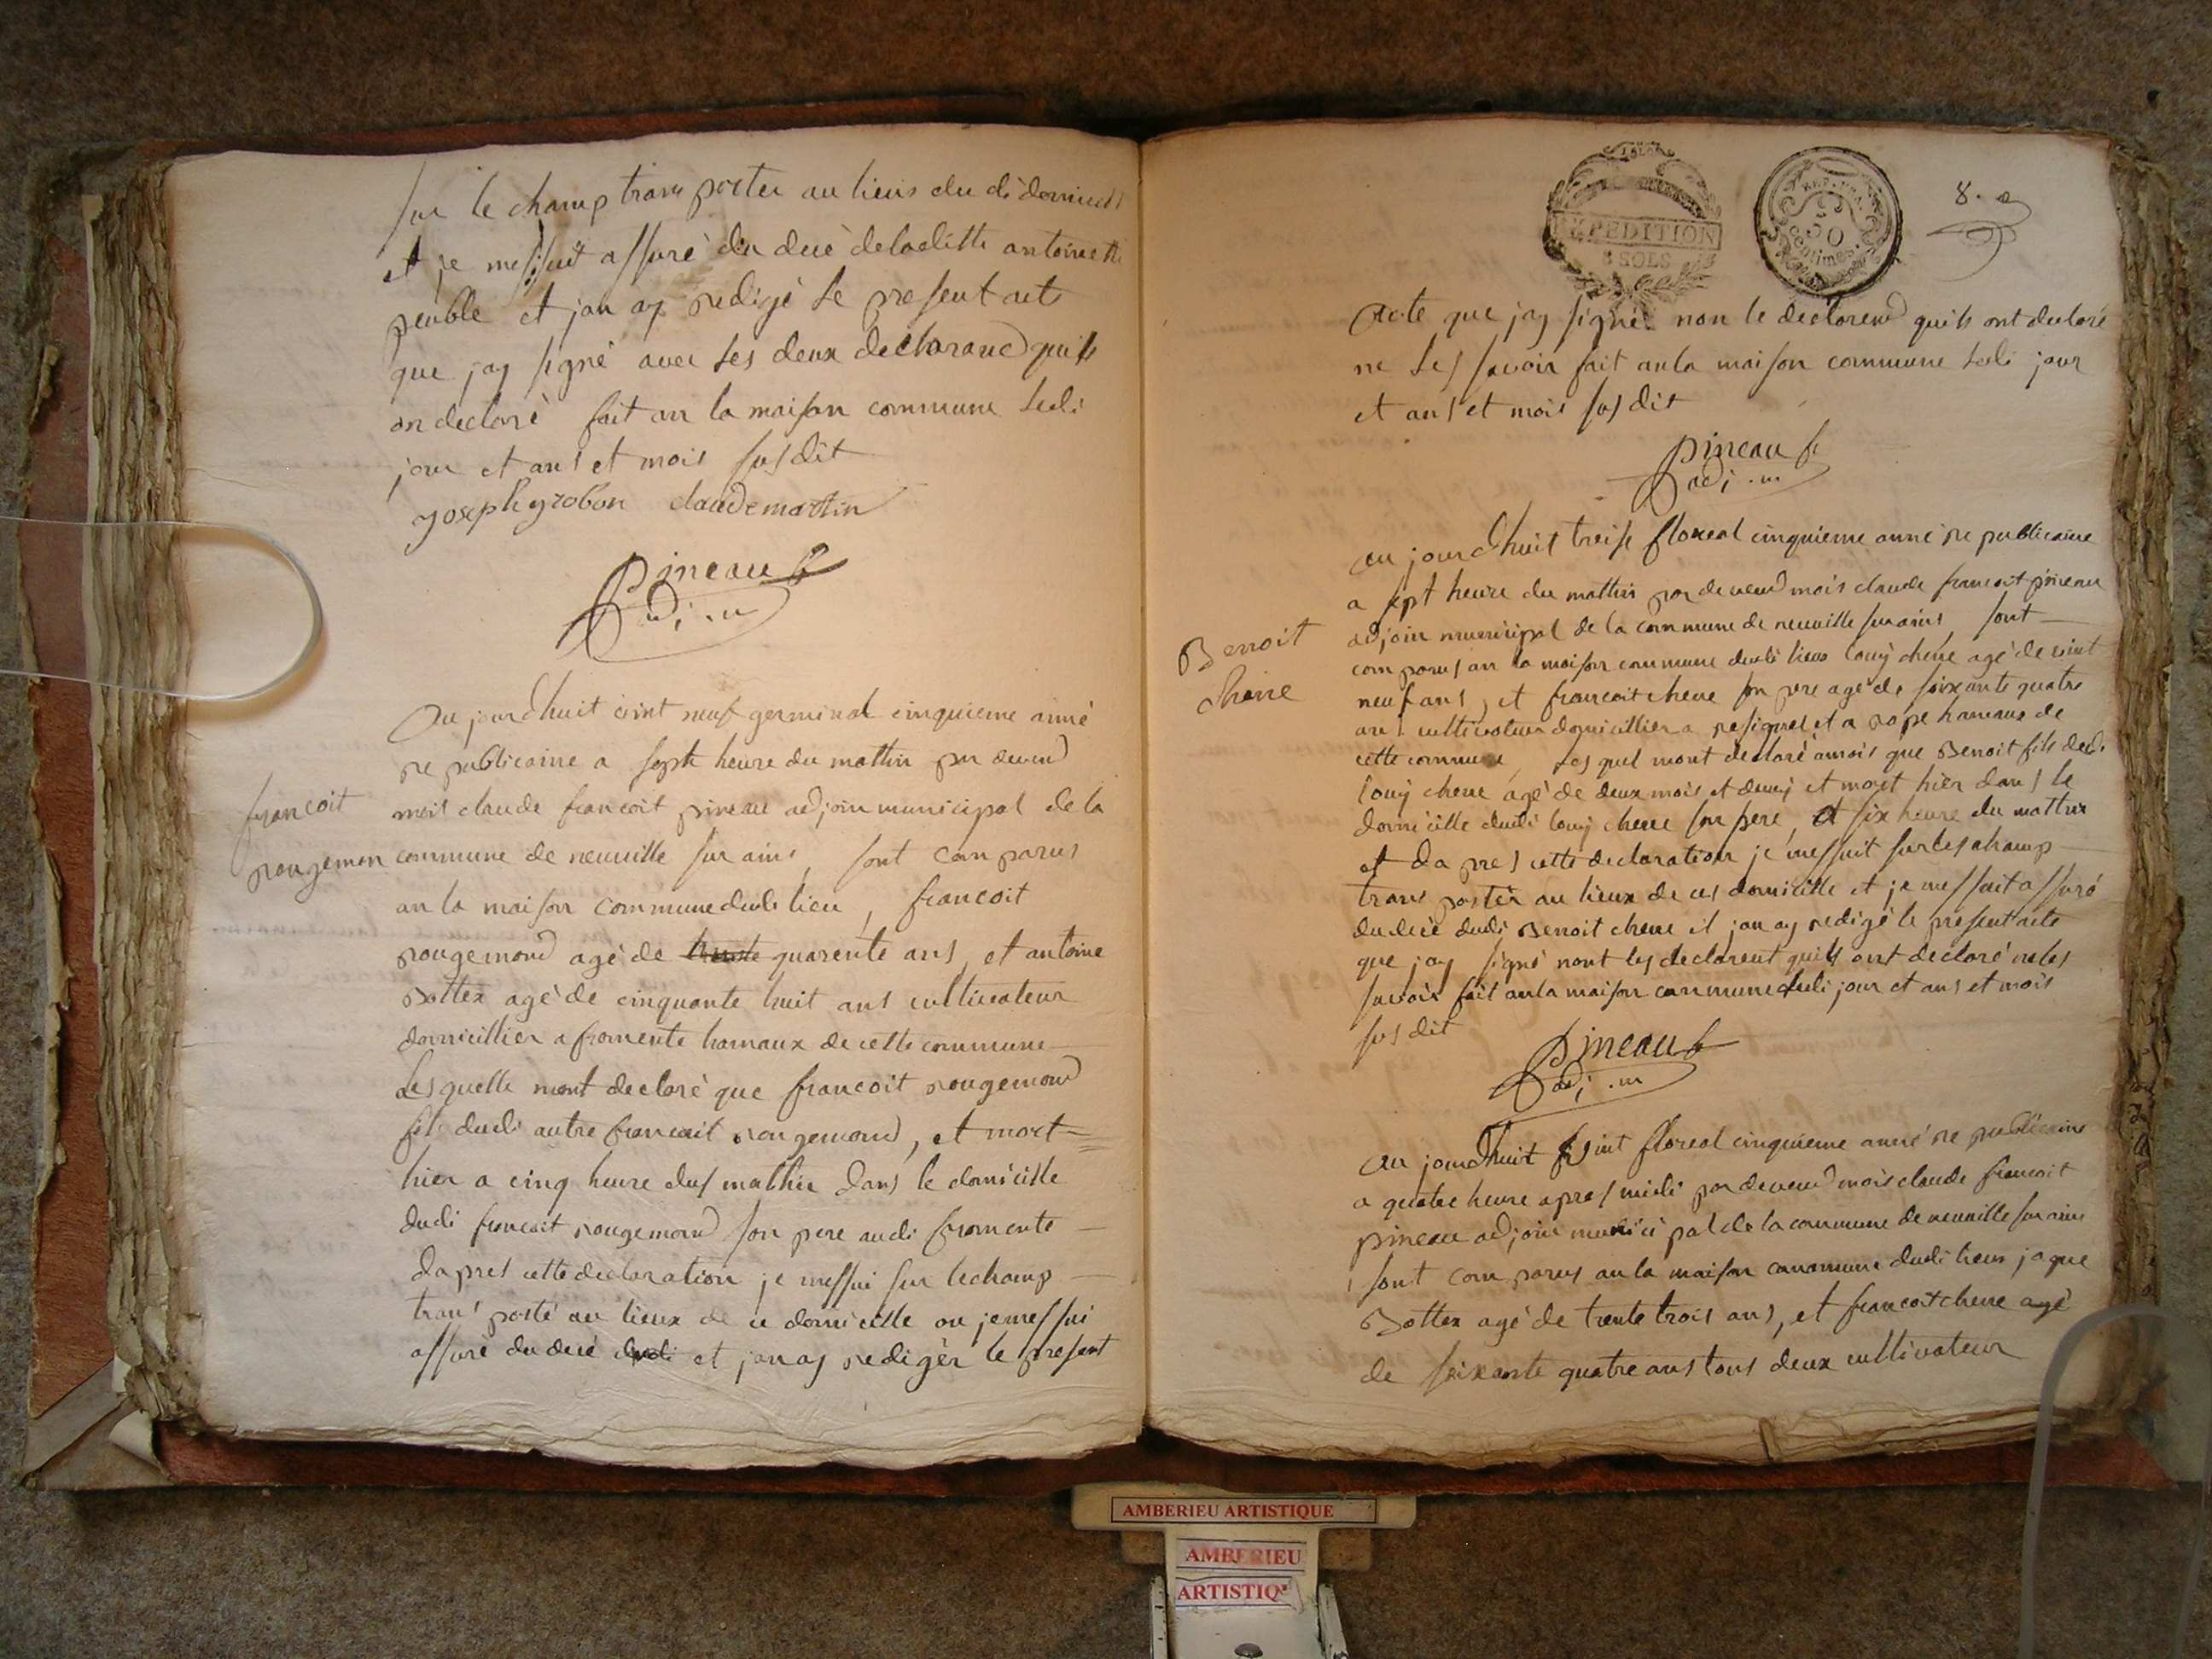 sur le champ transporter au lieus du di domicill
et je messuit assuré du decé de ladette antoinette
peuble et jan ay redigé le present acte
que jay signé avec les deux declarand quils
on declaré fait an la maison commune ledi
jour et ans et mois susdit
joseph grobon claude martin
pineau
adj. m
Au jourdhuit vint neuf germinal cinquieme anné
republicaine a septe heure du mattin par devend
francoit mois claude francoit pineau adjoin municipal de la
rougemon commune de neuville sur ains, sont comparus
an la maison commune dudi lieu, francoit
rougemond agé de trente quarente ans, et antoine
Bottex agé de cinquante huit ans cultivateur
domicillier a fromente hamaux de cette commune
Lesquelle mont declaré que francoit rougemond
fils dudi autre francoit rougemond, et mort
hier a cinq heure dus mathin dans le domicille
dudi francoit rougemond son pere audi fromente
dapres cette declaration je messui sur lechamp
trans porté au lieux de ce domicille ou jemessui
assuré du decé dudi et janay redigér le present
EXPEDITION
8 SOLS
REP. FRA.
50
centimes
8.
acte que jay signé non le declarend quils ont declaré
ne les savoir fait anla maison commune ledi jour
et ans et mois susdit
pineau
adj. m
au jourdhuit treise floreal cinquieme anné republicaine
a sept heure du mattin pardevend mois claude francoit pineau
Benoit
chene
adjoin municipal de la commune de neuville surains, sont
comparus an la maison commune dudi lieus louy chene agé de vint
neuf ans, et francoit chene son pere agé de soixante quatre
ans cultivateur domicillier a resignel et a rape hameaux de
cette commune, Les quel mont declaré amois que Benoit fils dudi
louy chene agé de deux mois et demy et mort hier dans le
domicille dudi louy chene son pere, a six heure du mattin
et dapres cette declaration je messuit surleschamp
trans portér au lieux de ces domicille et je messuit assuré
dudecé dudi Benoit chene et jan ay redigé le present acte
que jay signé nont les declarent quils ont declaréneles
savoir fait anla maison commune ledi jour et ans et mois
susdit
pineau
adj. m
au jourdhuit vint floreal cinquieme anné republicaine
a quatre heure apres midi pardevend mois claude francoit
pineau adjoin municipal de la commune de neuville surains
sont comparus anla maison commune dudi lieus jaque
Bottex agé de trente trois ans, et francoit chene agé
de soixante quatre ans tous deux cultivateur
AMBERIEU ARTISTIQUE
AMBERIEU
ARTISTIQ